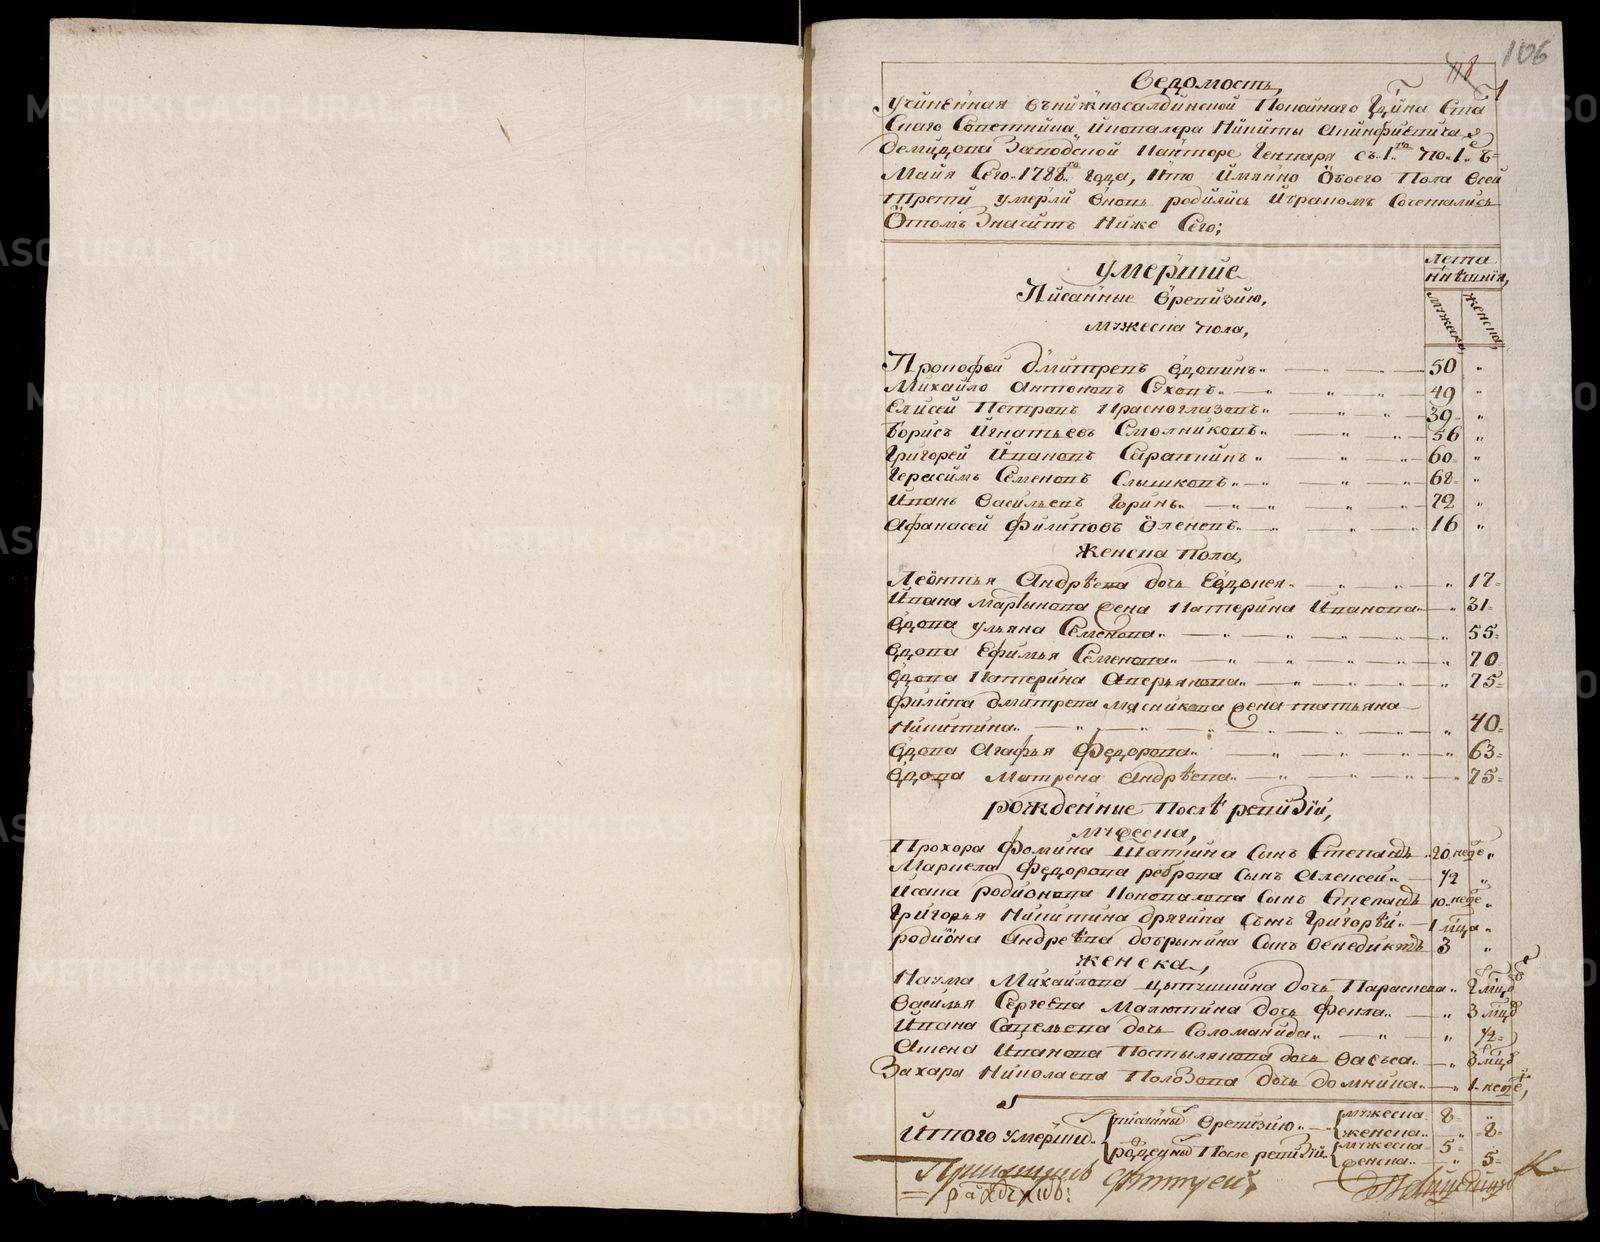 118
106
Ведомость,
Учиненная внижносалдинской Покойнаго Гдина Ста
Скаго Советника икавалера Никиты Акинфиевича
демидова Заводской канторе Генваря съ 1го по 1е
Майя Сего 1788го года, кто имянно Обоего Пола Всей
трети умерли вновь родились ибраком Сочетались
О том Значит Ниже Сего;
умершие
Лета
нынѣшния,
Писанные Вревизию,
мужеска
женска,
мужеска пола,
Прокофей дмитрев Вдовинъ 50
Михайло антоновъ Суховъ 49
Елисей Петровъ Красноглазовъ 39
Борисъ Игнатьевъ Смолниковъ 56
Григорей Ивановъ 60
Герасимъ Семеновъ Слышковъ 68
Иванъ Васильевъ Горинъ 72
Афанасей Филиповъ Оленевъ 16
Женска Пола,
Леонтья Андрѣева дочь Евдокея 17
Ивана мартынова жена Катерина Иванова 31
Вдова ульяна Семенова 55
Вдова Ефимья Семенова 70
Вдова Катерина Аверьянова 75
Филипа дмитрева мясникова жена татьяна
Никитина 40
Вдова Агафья Федорова 63
Вдова Матрена Андрѣева 75
рожденные Послѣ ревизии,
мужеска,
Прохора Фомина Шапкина Сынъ Степанъ 20 неде
Маркела Федорова реброва Сынъ Алексей 1/2
Исака родионова Коновалова Сынъ Степанъ 10 неде
Григорья Никитина брягина Сынъ Григорѣй 1 мца
родиона Андреѣва добрынина Сынъ Венедиктъ 3
женска,
Наума Михайлова дочь Параскева 2 мцд
Василья Сергеева Малютина дочь Фекла 3 мцд
Ивана Савельева дочь Соломанида 1/2
Ивanova Постылякова дочь Васъса 3 мцд
Захара Николаева Полозова дочь домника 1 неде
Итого умерши
писаны Вревизию мужеска 8
женска 8
рожденны После ревизии мужеска 5
женска 5